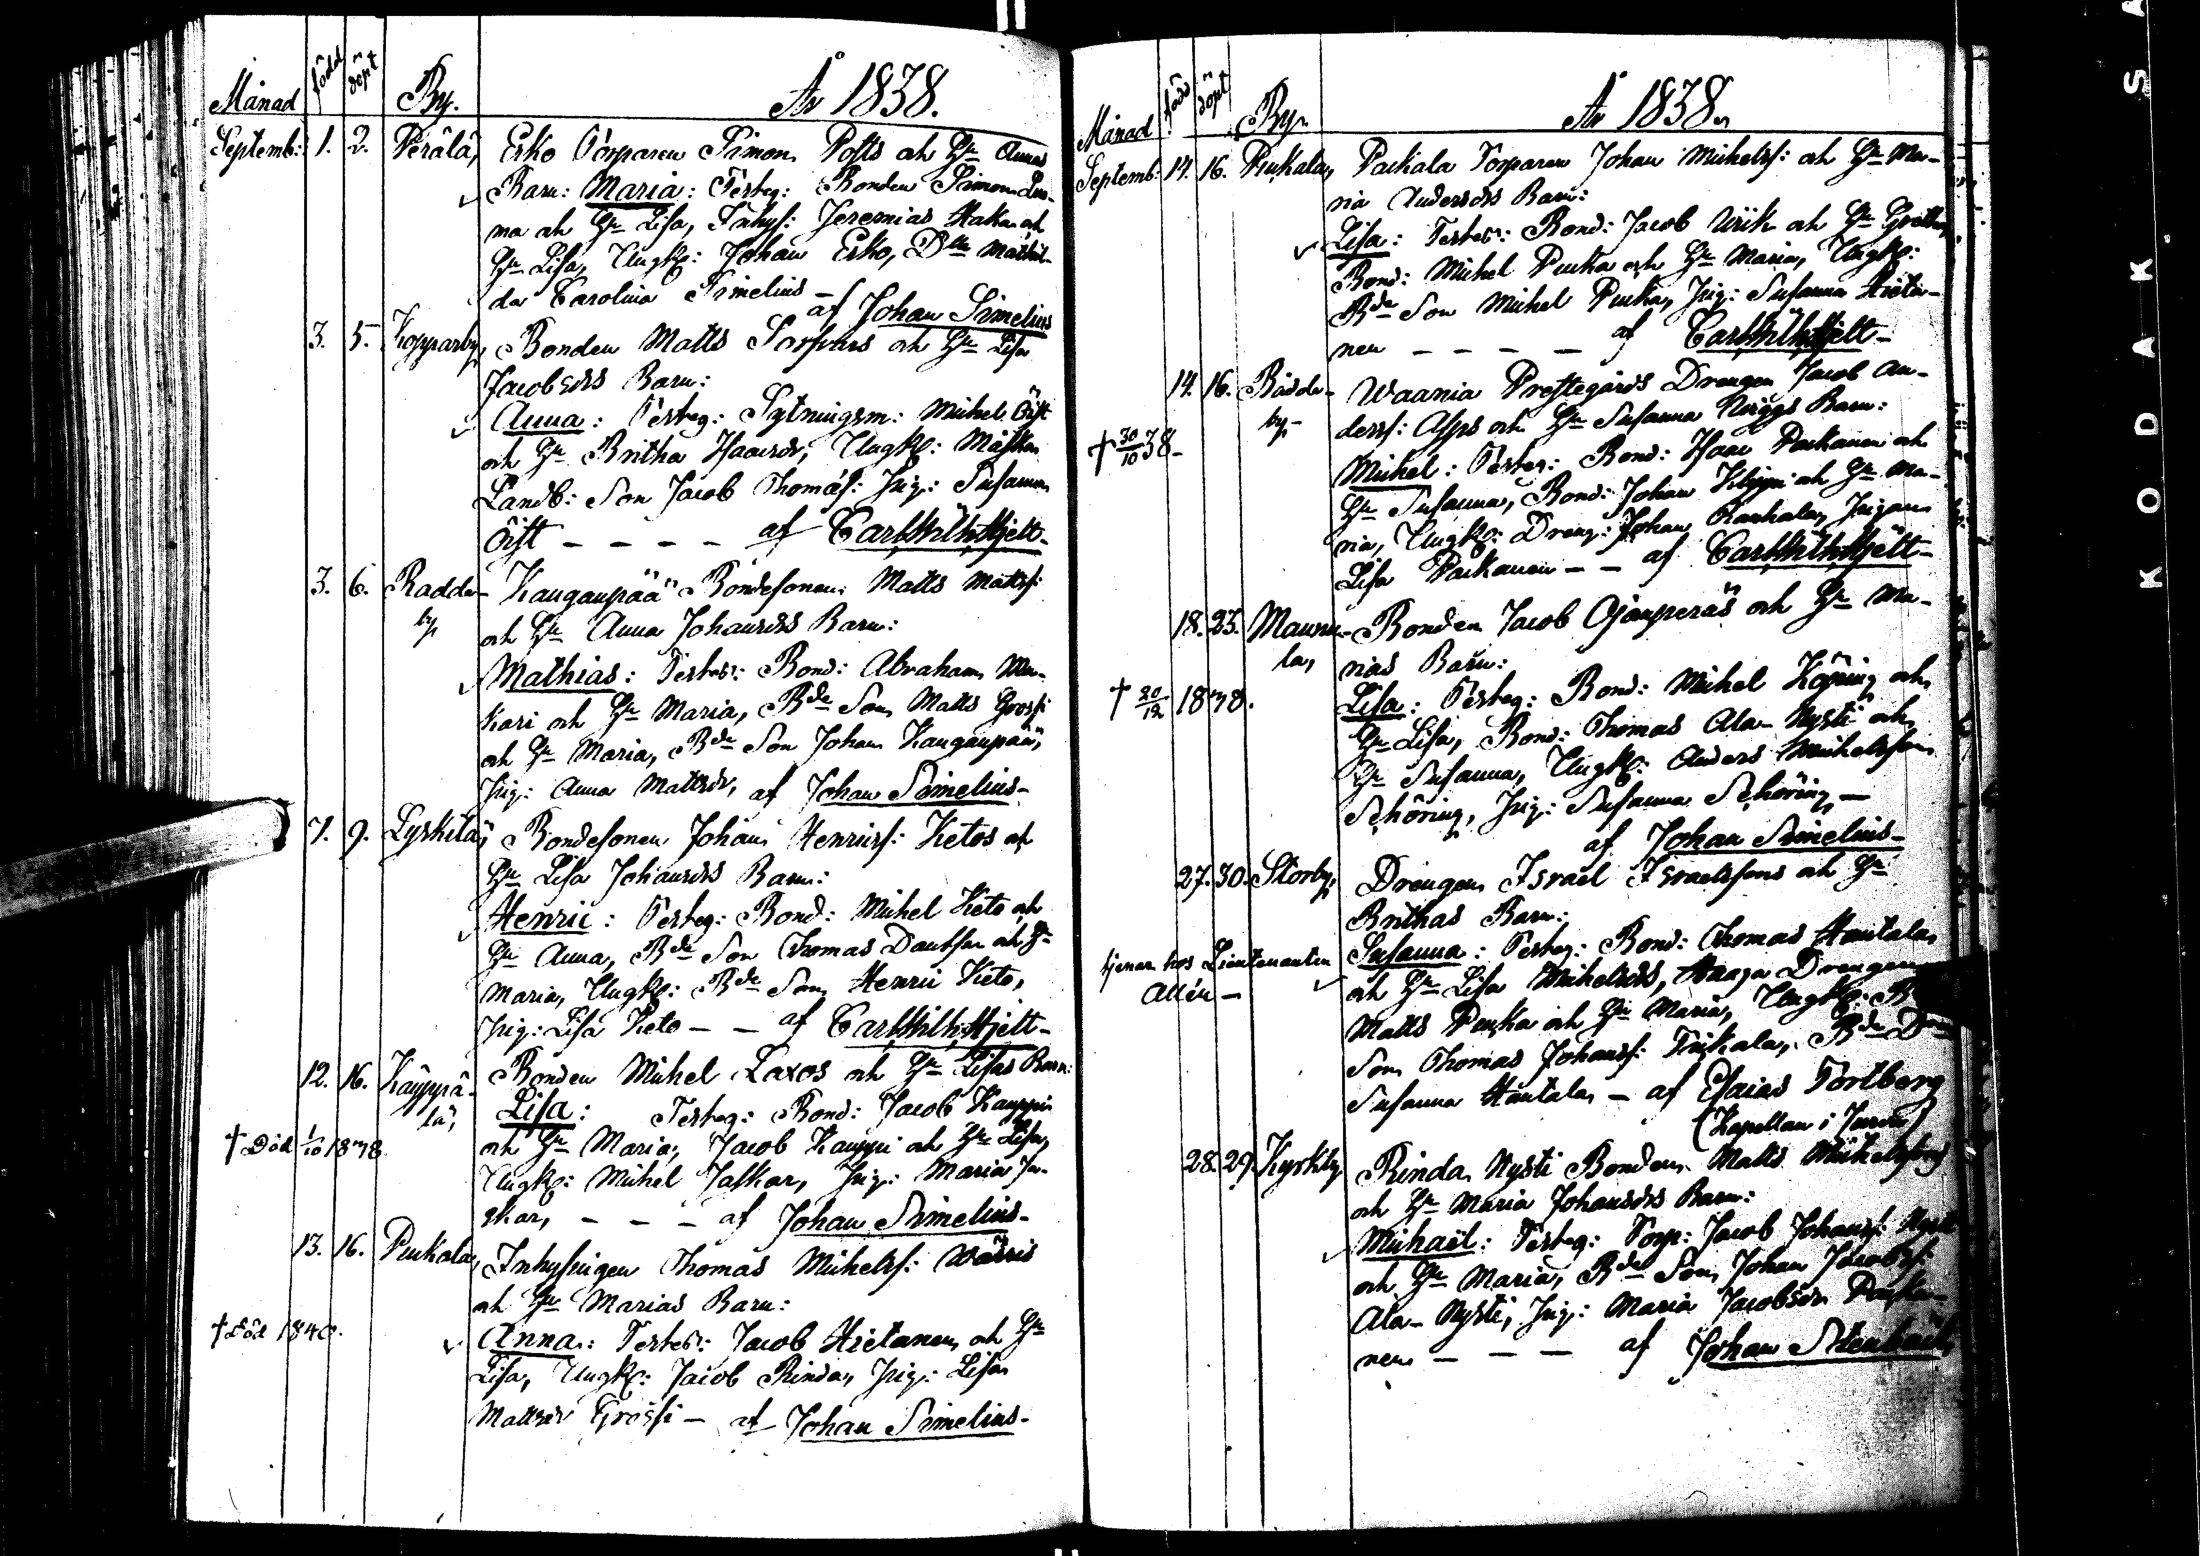 Månad född döpt By. År 1838.
Septemb: 1. 2. Perälä, Erko Torparen Simon Posts och Hu Annas
Barn: Maria: Testeg: Bonden Simon Luo-
ma och Hu Lisa, Inhys: Jeremias Haka och
Hu Lisa, Ungk: Johan Erko, Dlle Mathil-
da Carolina Simelius –
af Johan Simelius
3. 5. Kopparby, Bonden Matts Sorfvars och Hu Lisa
Jacobsdrs Barn:
Anna: Testeg: Sytningsm: Michel Öist
och Hu Britha Isacsdr, Ungk: Mäskar
Landb: Son Jacob Thomäs: Pig: Susanna
Öist – – – – af Carl Wilh. Hjelt –
3. 6. Radda-
by Kauganpää Bondesonen Matts Mattss:
och Hu Anna Johansdrs Barn:
Mathias: Testes: Bond: Abraham Mu-
kari och Hu Maria, Bde Son Matts Grossi
och Hu Maria, Bde Son Johan Kauganpää,
Pig: Anna Mattsdr, af Johan Simelius –
7. 9. Lyskilä, Bondesonen Johan Henrics: Ketos och
Hu Lisa Johansdrs Barn:
Henric: Testeg: Bond: Michel Keto och
Hu Anna, Bde Son Thomas Dantsar och Hu
Maria, Ungk: Bde Son Henric Keto,
Pig: Lisa Keto – – af Carl Wilh. Hjelt –
12. 16. Käyppä-
lä, Bonden Michel Laxos och Hu Lisas Barn:
Lisa: Testeg: Bond: Jacob Kauppi
† Död 1/10 1838 och Hu Maria, Jacob Kauppi och Hu Lisa,
Ungk: Michel Jaskar, Pig: Maria Ja-
skar, – – – af Johan Simelius –
13. 16. Puckala, Inhysingen Thomas Michelss: Wäris
och Hu Marias Barn:
† Död 1840. Anna: Testes: Jacob Hietanen och Hu
Lisa, Ungk: Jacob Rinda, Pig: Lisa
Mattsdr Grossi – af Johan Simelius –
Månad född döpt By. År 1838.
Septemb: 14. 16. Puckala, Packala Torparen Johan Michelss: och Hu Ma-
ria Andersdrs Barn:
Lisa: Testes: Bond: Jacob Wiik och Hu Gretha,
Bond: Michel Pucka och Hu Maria, Ungk:
Bde Son Michel Pucka, Pig: Susanna Hieta-
nen – – – – af Carl Wilh. Hjelt –
14. 16. Radda-
by – Waania Prestegårds Drengen Jacob An-
† 30/10 38 – derss: Asps och Hu Susanna Norggs Barn:
Michel: Testeg: Bond: Isaac Packanen och
Hu Susanna, Bond: Johan Kilppi och Hu Ma-
ria, Ungk: Dreng: Johan Rauhala, Pigan
Lisa Packanen – – af Carl Wilh. Hjelt –
18. 23. Maunu-
la, Bonden Jacob Ojanperäs och Hu Ma-
rias Barn:
† 20/12 1838. Lisa: Testeg: Bond: Michel Köping och
Hu Lisa, Bond: Thomas Ala-Nysti och
Hu Susanna, Ungk: Anders Michelsson
Schöring, Pig: Susanna Schöring –
af Johan Simelius –
27. 30. Storby, Drengen Israel Israelssons och Hu
Brithas Barn:
tjenar hos Lieutenanten
Allén – Susanna: Testeg: Bond: Thomas Hautala
och Hu Lisa Michelsdr, Haapa Drengen
Matts Pucka och Hu Maria, Ungk: B
Son Thomas Johanss: Trikala, Bde D
Susanna Hautala – af Esaias Tortberg
(Kapellan i Jurva)
28. 29. Kyrkby, Rinda Nysti Bonden Matts Michelssons
och Hu Maria Johansdrs Barn:
Michaël: Testeg: Torp: Jacob Johanss: Nysti
och Hu Maria, Bde Son Johan Jacobss:
Ala-Nysti, Pig: Maria Jacobsdr Packa-
nen – – – af Johan Stenbäck
KODAK SA